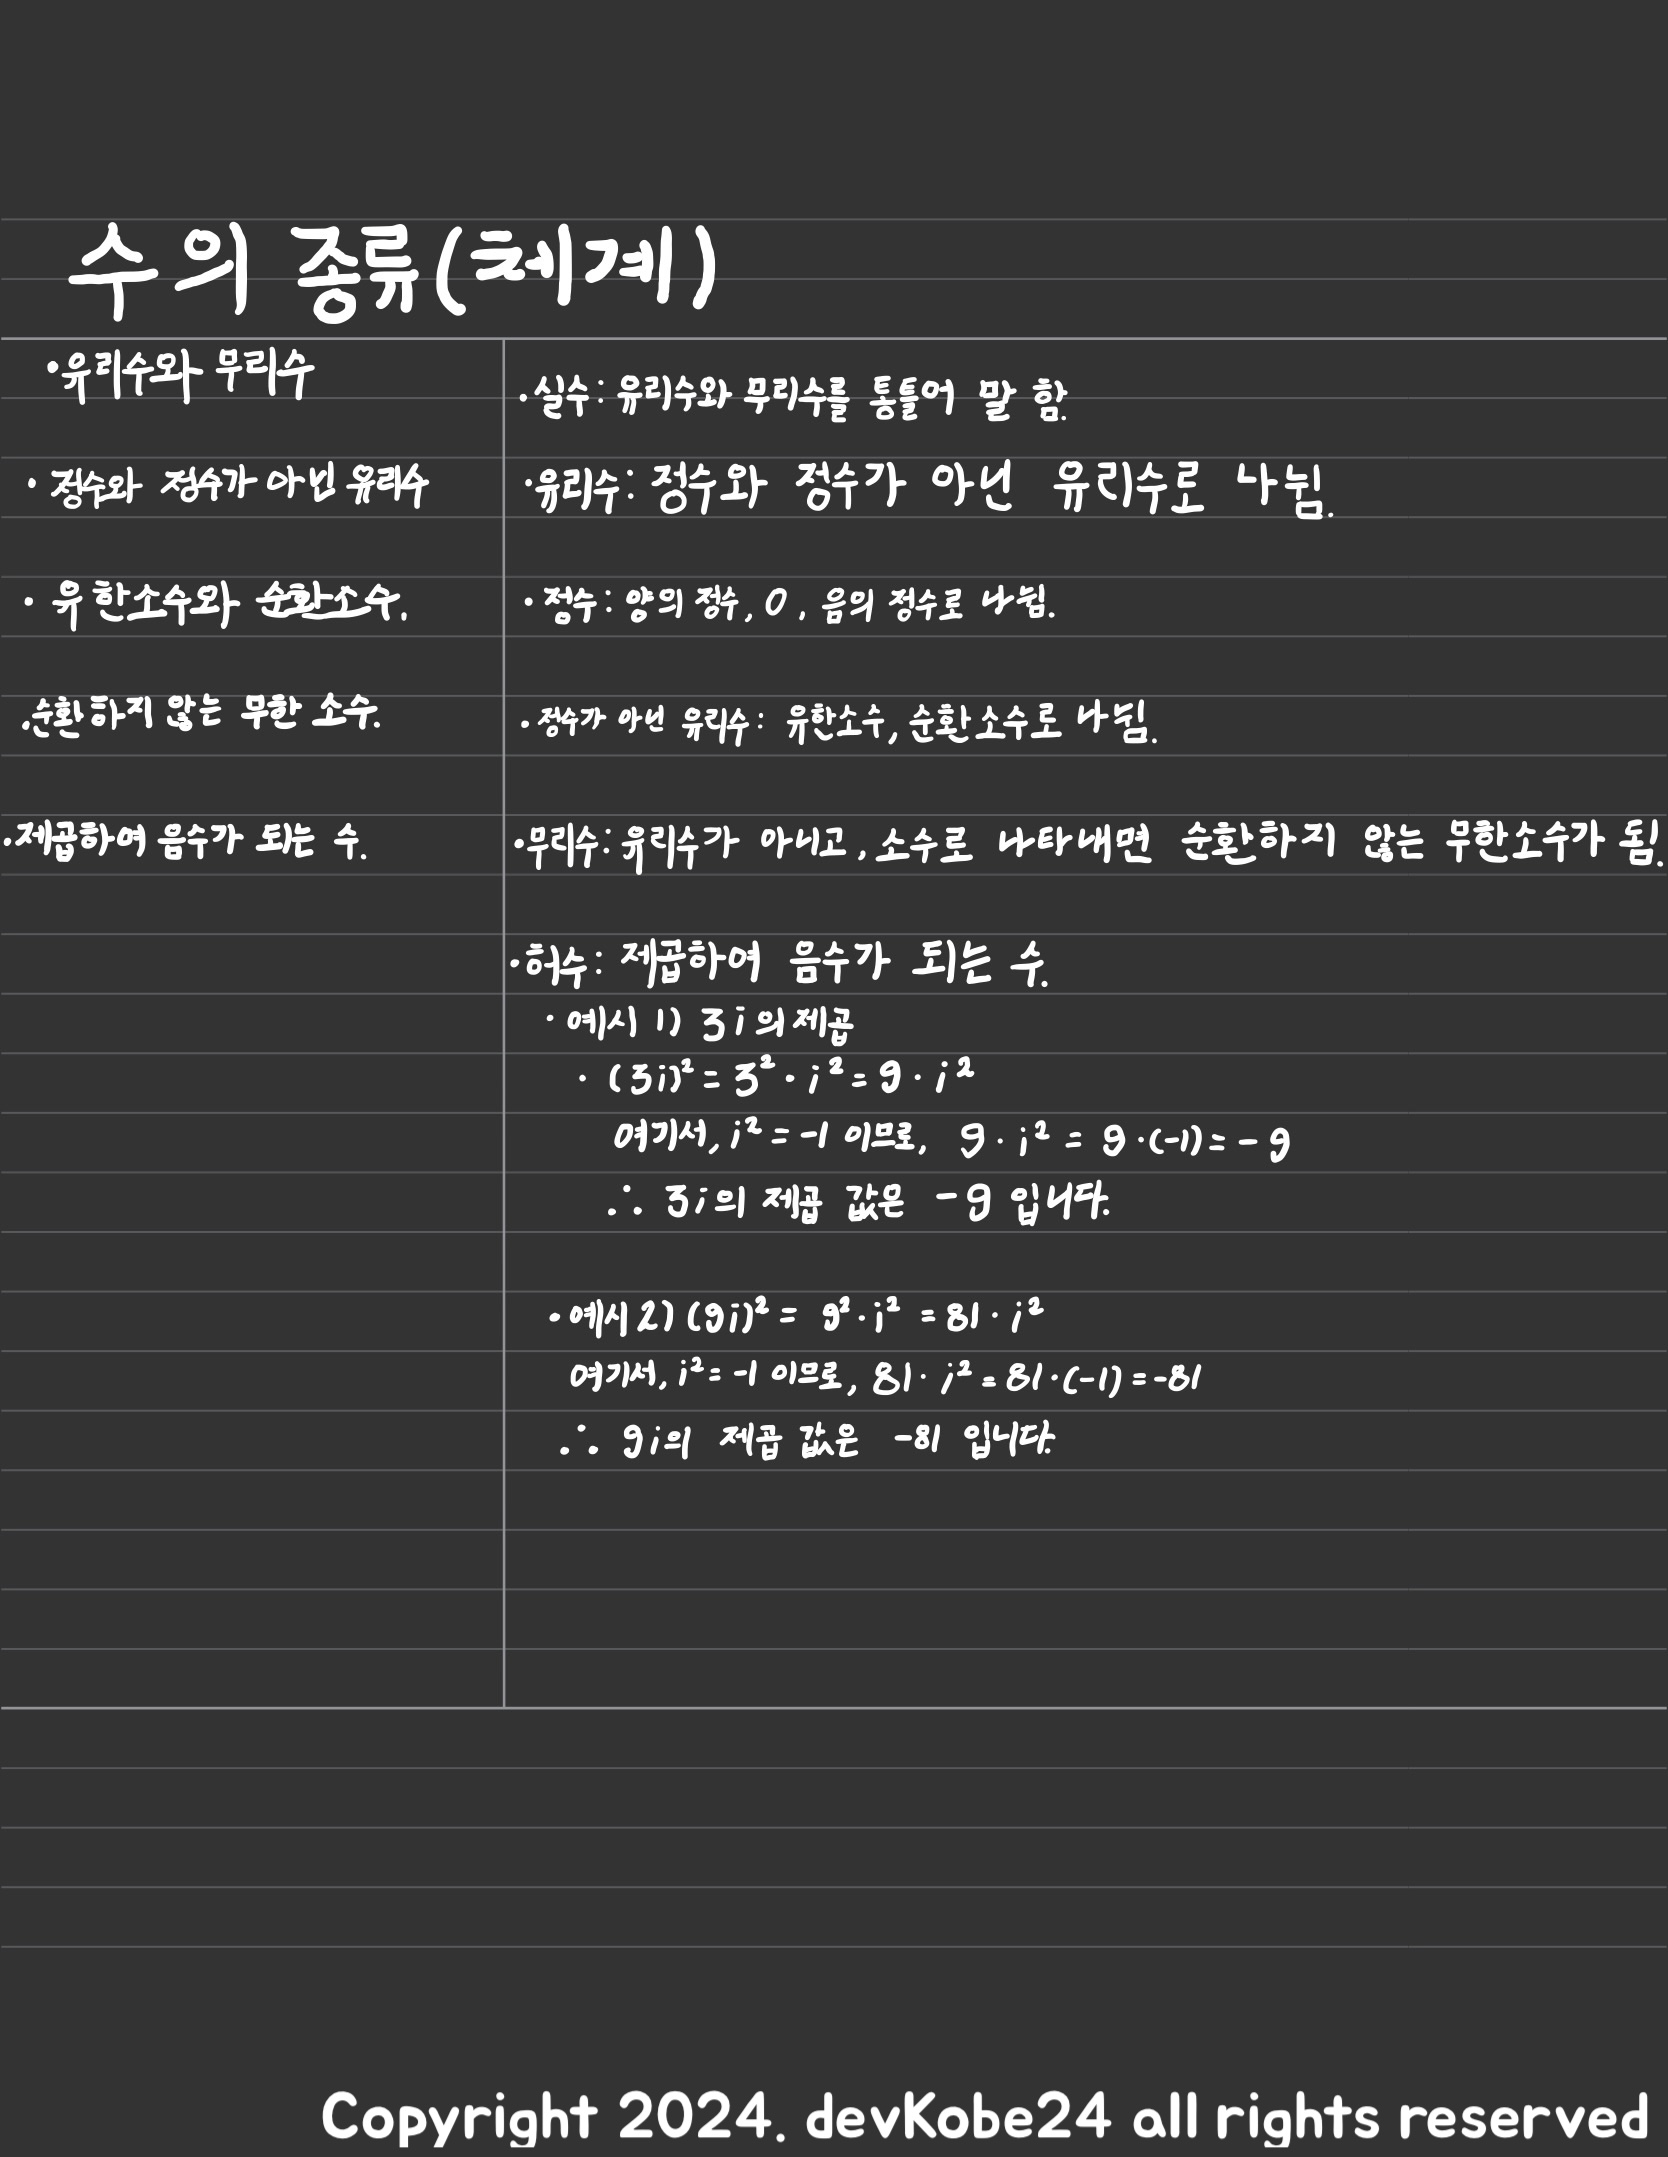 수의 종류(체계)
·유리수와 무리수
·정수와 정수가 아닌 유리수
·유한소수와 순환소수.
·순환하지 않는 무한 소수.
·제곱하여 음수가 되는 수.
·실수: 유리수와 무리수를 통틀어 말 함.
·유리수: 정수와 정수가 아닌 유리수로 나뉨.
·정수: 양의 정수, 0, 음의 정수로 나뉨.
·정수가 아닌 유리수: 유한소수, 순환소수로 나뉨.
·무리수: 유리수가 아니고, 소수로 나타내면 순환하지 않는 무한소수가 됨.
·허수: 제곱하여 음수가 되는 수.
·예시 1) 3i의 제곱
·(3i)² = 3²·i² = 9·i²
여기서, i² = -1 이므로, 9·i² = 9·(-1) = -9
∴ 3i의 제곱 값은 -9 입니다.
·예시2) (9i)² = 9²·i² = 81·i²
여기서, i² = -1 이므로, 81·i² = 81·(-1) = -81
∴ 9i의 제곱 값은 -81 입니다.
Copyright 2024. devKobe24 all rights reserved